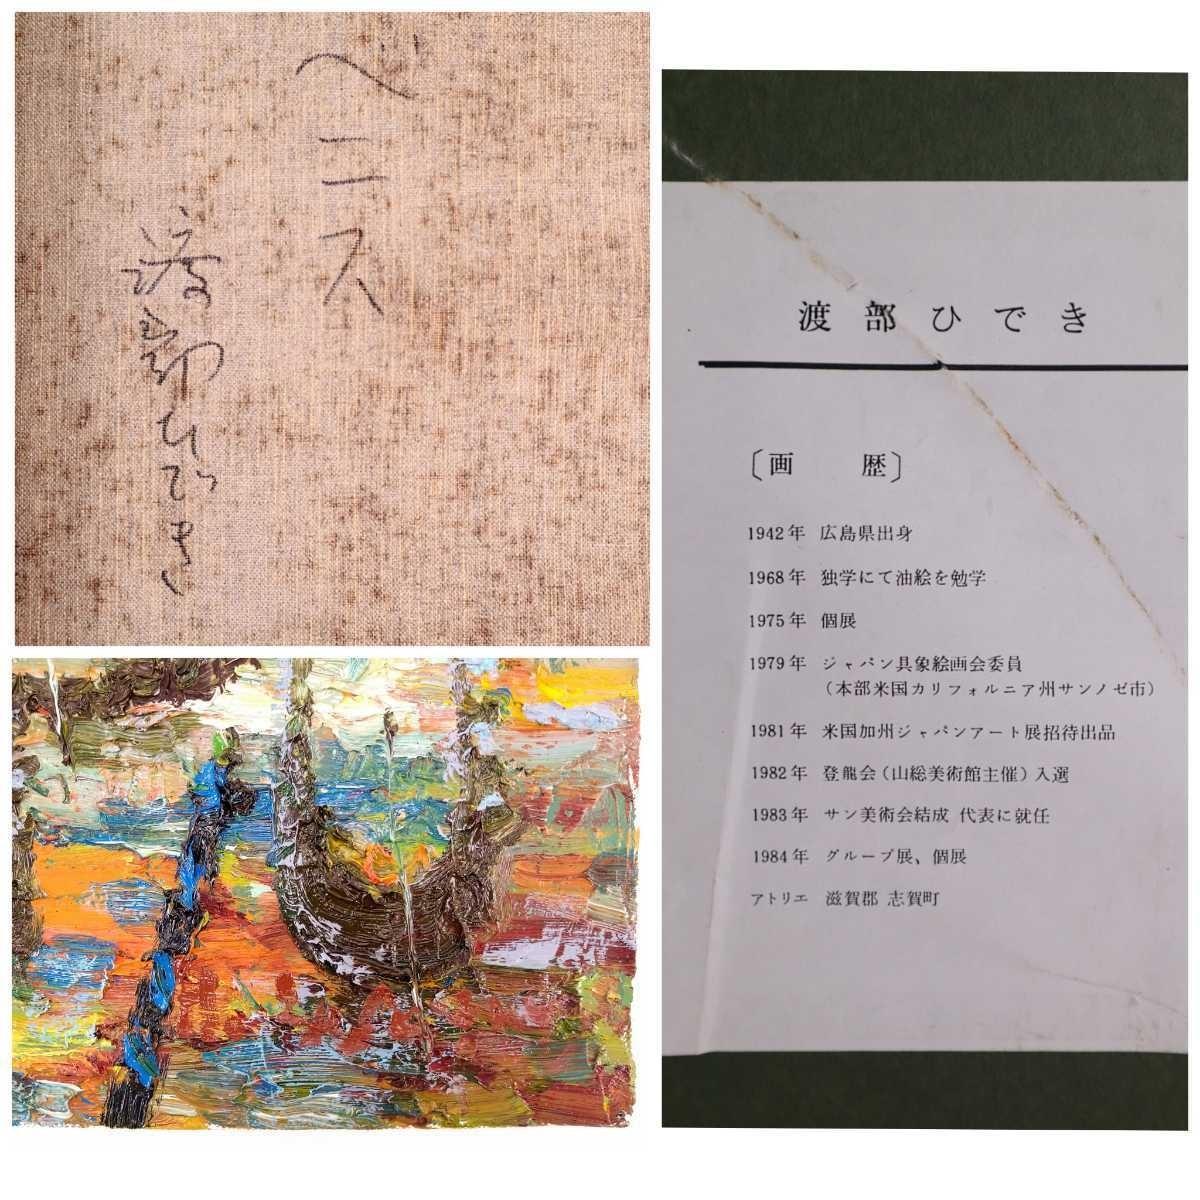 ベニス
渡部ひでき
渡部ひでき
〔画 歴〕
1942年 広島県出身
1968年 独学にて油絵を勉学
1975年 個展
1979年 ジャパン具象絵画会委員
（本部米国カリフォルニア州サンノゼ市）
1981年 米国加州ジャパンアート展招待出品
1982年 登龍会（山総美術館主催）入選
1983年 サン美術会結成 代表に就任
1984年 グループ展、個展
アトリエ 滋賀郡 志賀町